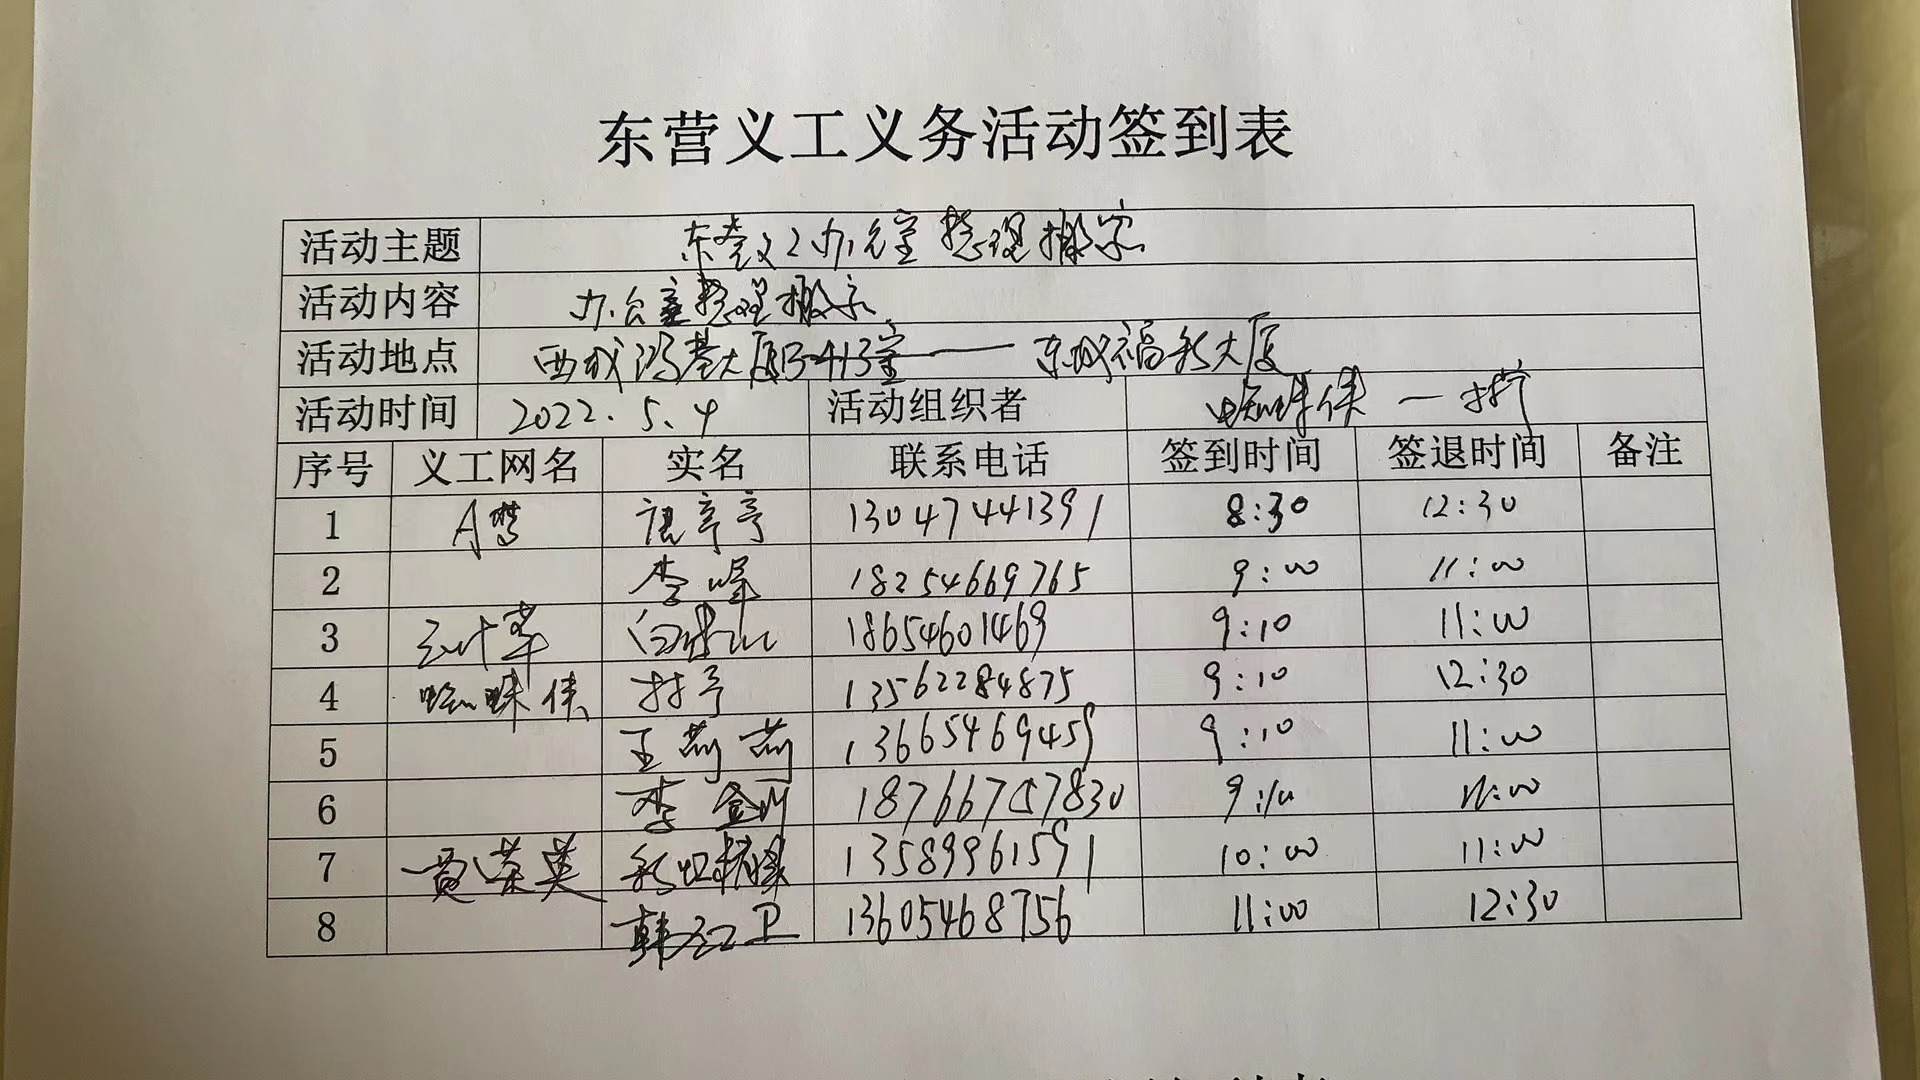 东营义工义务活动签到表
活动主题 东营义工办公室整理搬家
活动内容 办公室整理搬家
活动地点 西城鸿基大厦B-413室——东城福彩大厦
活动时间 2022.5.4 活动组织者 蜘蛛侠
序号 义工网名 实名 联系电话 签到时间 签退时间 备注
1 A梦 亭亭 13047441391 8:30 12:30
2 李峰 18254669765 9:00 11:00
3 白 18654601469 9:10 11:00
4 蜘蛛侠 13562284875 9:10 12:30
5 王莉莉 13665469459 9:10 11:00
6 李金川 18766757830 9:10 11:00
7 贾荣英 彩虹 13589961591 10:00 11:00
8 韩红卫 13605468756 11:00 12:30